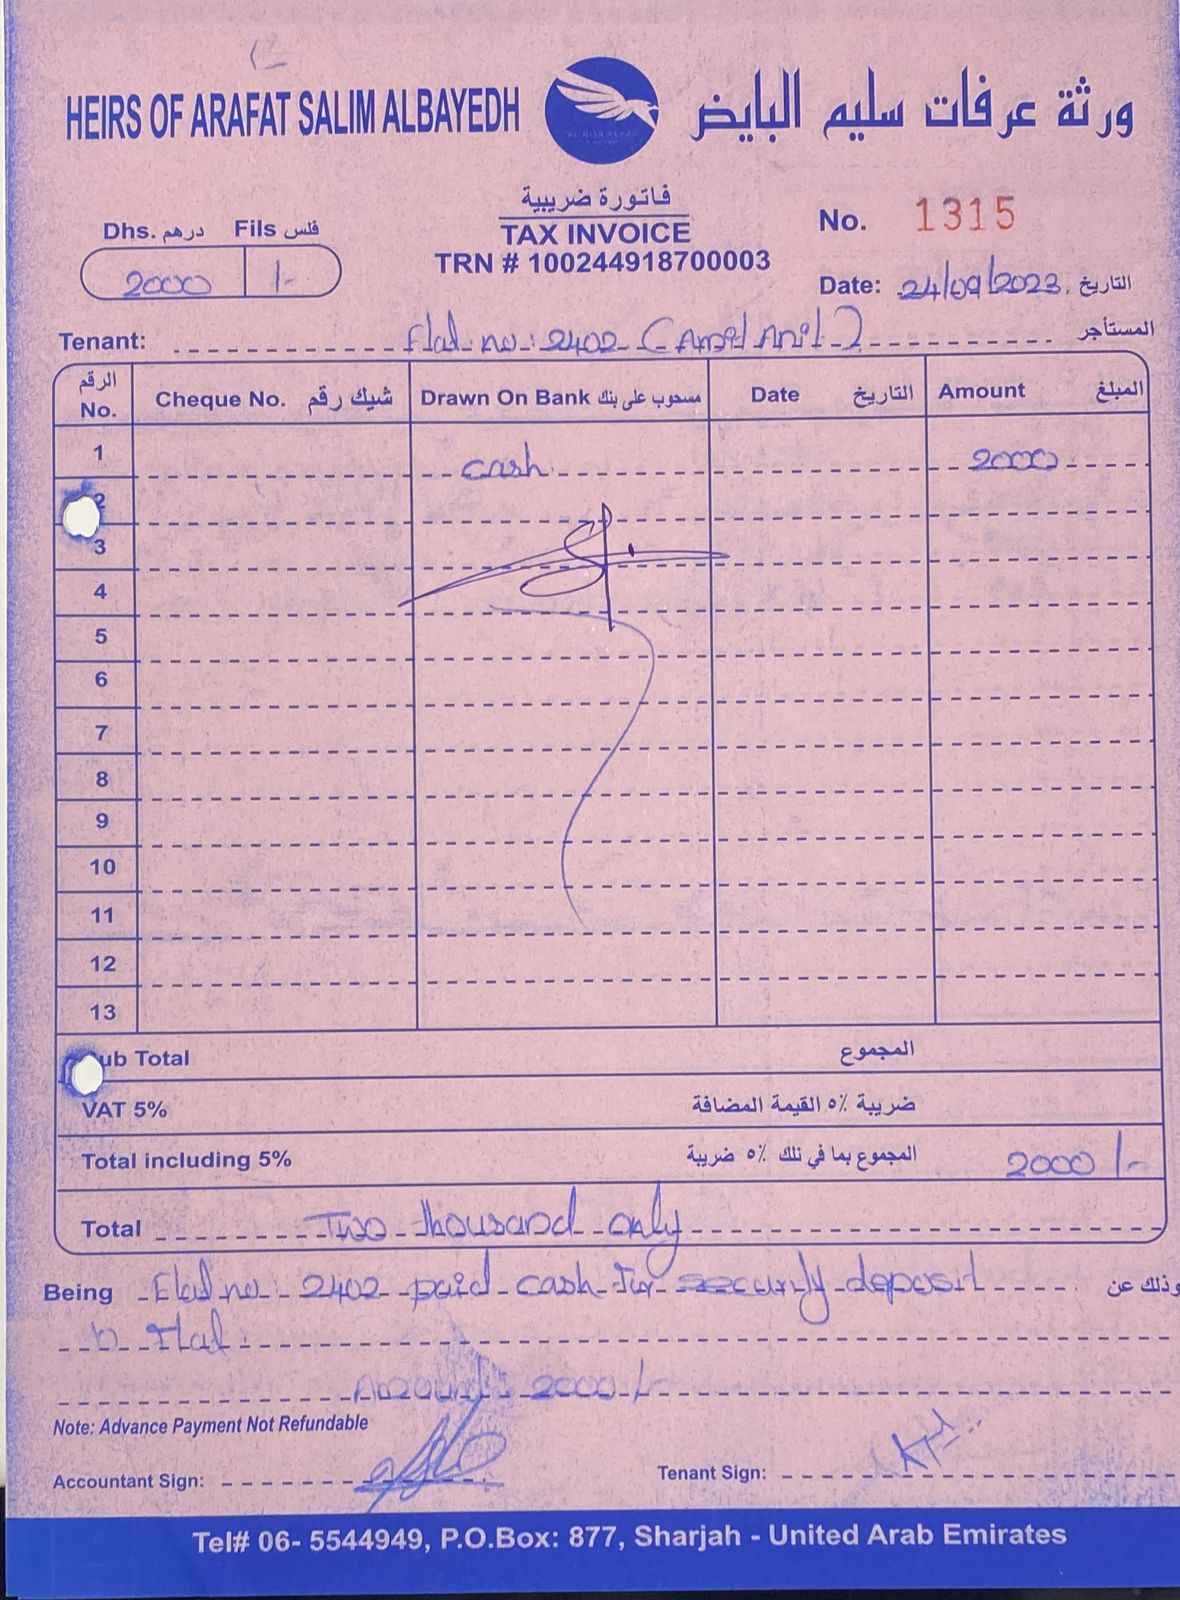 HEIRS OF ARAFAT SALIM ALBAYEDH
ورثة عرفات سليم البايض
فاتورة ضريبية
TAX INVOICE
TRN # 100244918700003
Dhs. درهم Fils فلس
2000 /-
No. 1315
Date: 24/09/2023 التاريخ
Tenant: Flat no: 2402 (Amil Anil) المستأجر
الرقم No. Cheque No. شيك رقم Drawn On Bank مسحوب على بنك Date التاريخ Amount المبلغ
1 cash 2000
2
3
4
5
6
7
8
9
10
11
12
13
ub Total المجموع
VAT 5% ضريبة ٥٪ القيمة المضافة
Total including 5% المجموع بما في تلك ٥٪ ضريبة 2000/-
Total Two thousand only
Being Flat no: 2402 paid cash for security deposit وذلك عن
Amount: 2000/-
Note: Advance Payment Not Refundable
Accountant Sign: Tenant Sign:
Tel# 06- 5544949, P.O.Box: 877, Sharjah - United Arab Emirates